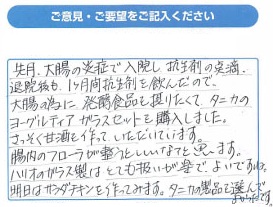 ご意見・ご要望をご記入ください
先月、大腸の炎症で入院し抗生剤の点滴、
退院後も1ヶ月間抗生剤を飲んだので、
大腸の為に発酵食品を摂りたくて、タニカの
ヨーグルティアガラスセットを購入しました。
さっそく甘酒を作っていただいています。
腸内のフローラが整うといいなァと思います。
ハリオのガラス製はとても扱いが楽でよいですね。
明日はカンダチキンを作ってみます。タニカの製品を選んで
よかったです。